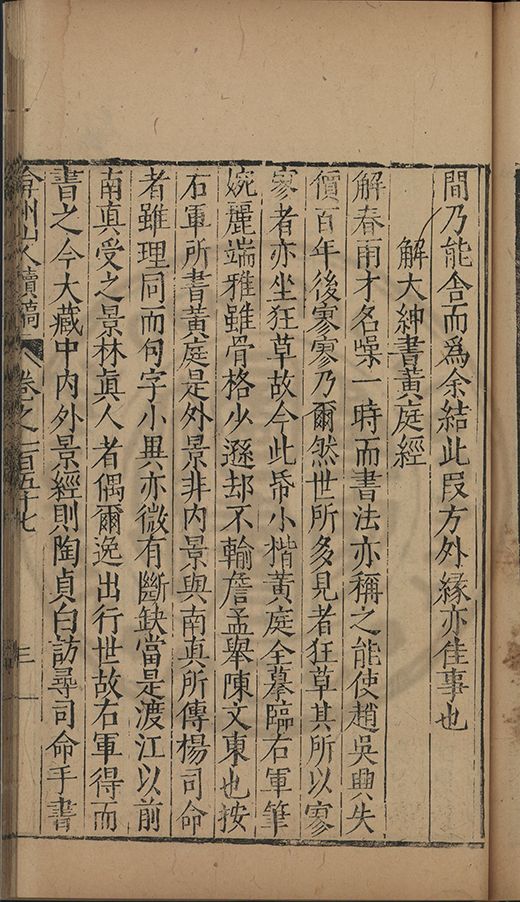 間乃能舍而爲余結此叚方外縁亦佳事也
解大紳書黃庭經
解春雨才名噪一時而書法亦稱之能使趙吳興失
價百年後寥寥乃爾然世所多見者狂草其所以寥
寥者亦坐狂草故今此帋小楷黃庭全摹臨右軍筆
婉麗端雅雖骨格少遜却不輸詹孟舉陳文東也按
右軍所書黃庭是外景非内景與南真所傳楊司命
者雖理同而句字小異亦微有斷缺當是渡江以前
南真受之景林真人者偶爾逸出行世故右軍得而
書之今大藏中内外景經則陶貞白訪尋司命手書
弇州山人續稿 卷之一百五十七 三